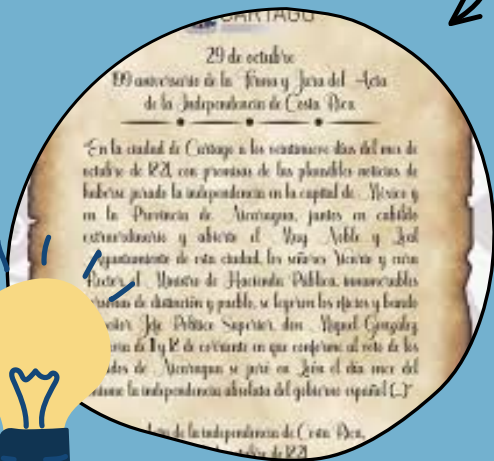 CARTAGO
29 de octubre
199 aniversario de la Firma y Jura del Acta
de la Independencia de Costa Rica
En la ciudad de Cartago a los veintinueve días del mes de
octubre de 1821, con premisas de las plausibles noticias de
haberse jurado la independencia en la capital de México y
en la Provincia de Nicaragua, juntos en cabildo
extraordinario y abierto el Muy Noble y Leal
Ayuntamiento de esta ciudad, los señores Vicario y cura
Rector, el Ministro de Hacienda Pública, innumerables
personas de distinción y pueblo, se leyeron los oficios y bando
Jefe Político Superior, don Miguel González
de 11 y 18 de corriente en que conforme al voto de los
de Nicaragua se juró en León el día once del
la independencia absoluta del gobierno español (...)"
de la independencia de Costa Rica,
octubre de 1821